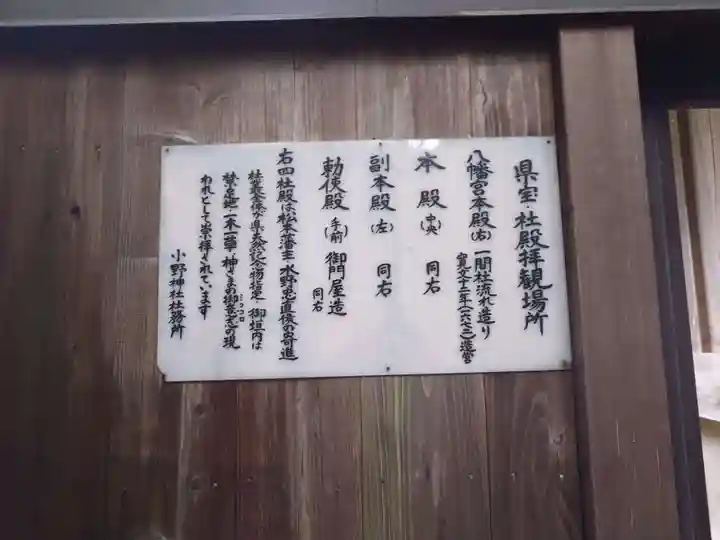 県宝・社殿拝観場所
八幡宮本殿(右) 一間社流れ造り
寛文十二年(一六七二)造営
本殿(中央) 同右
副本殿(左) 同右
勅使殿(手前) 御門屋造
同右
右四社殿は松本藩主 水野忠直候の寄進
社叢全体が県天然記念物指定・御垣内は
禁足地 一木一草 神さまの御意志の現
ミココロ
われとして崇拝されています
小野神社社務所